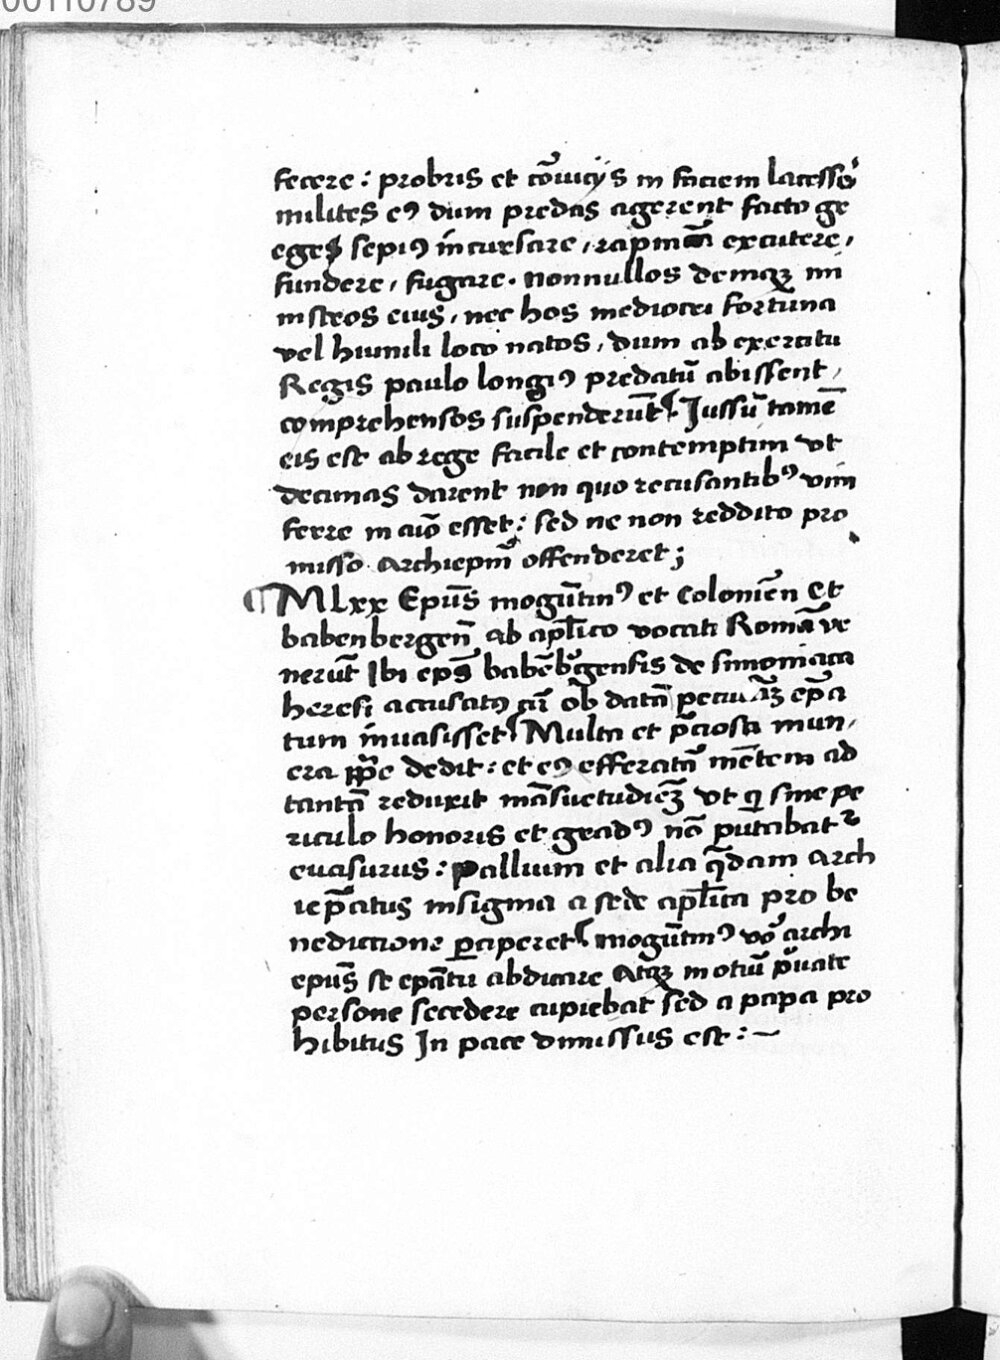 00110789
fecere : probris et cōuicijs in faciem lacesse᷑
milites eꝰ dum predas agerent facto ge
eges sepiꝰ īncursare , rapinā excutere ,
fundere , fugare . nonnullos deniqꝫ mi
nistros eius , nec hos mediocri fortuna
vel humili loco natos , dum ab exercitu
Regis paulo longiꝰ predatū abissent ,
comprehensos suspenderūt Jussū tamē
eis est ab rege facile et contemptim vt
decimas darent non quo recusantibꝰ vim
ferre in aīo esset : sed ne non reddito pro
misso archiepm̄ offenderet ;
¶ MLxx Epūs mogūtinꝰ et Coloniēn Et
babenbergen̄ ab apl̄ico vocati Romā ve
nerūt Ibi ep̄s babēbᷣgensis de simoniaca
heresi accusatꝰ cū ob datā pecuniāꝫ ep̄a
tum īnuasisset Multa et p̄ciosa mun ,
era pp̄e dedit : et eꝰ efferatā mētem ad
tantā reduxit māsuetudiēꝫ vt qi sine pe
riculo honoris et gradꝰ nō putabatᷣ
euasurus : Pallium et alia q̄dam arch
iep̄catus insignia a sede apl̄ica pro be
nedictione ꝑciperet mogūtinꝰ vō archi
epūs se epātu abdicare Atqꝫ in otiū p̄uate
persone secedere cupiebat sed a papa pro
hibitus In pace dimissus est : ~